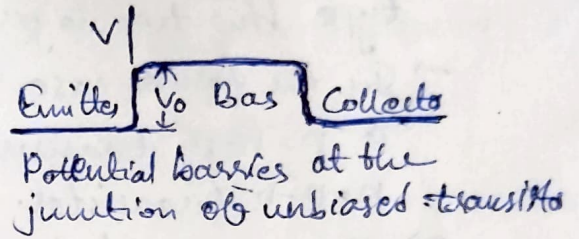 V
Emitter V₀ Bas Collecto
Potential barries at the
junction of unbiased transisto